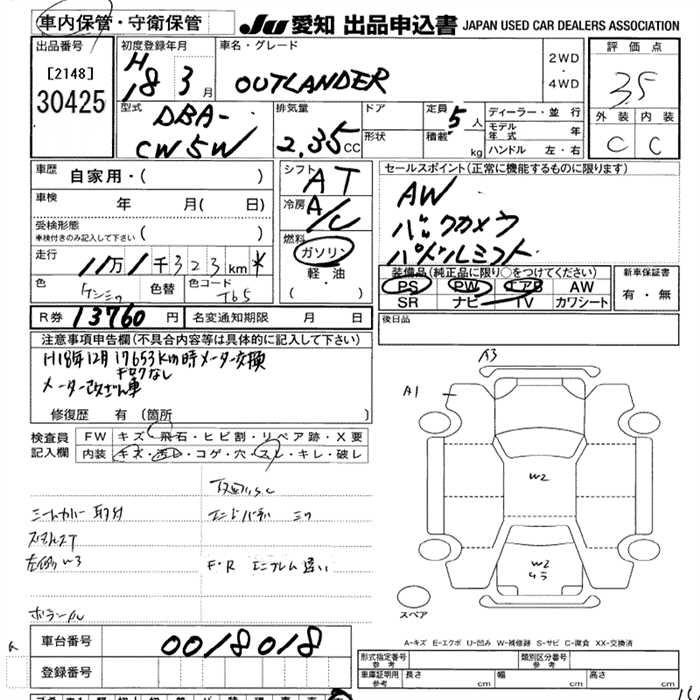 車内保管・守衛保管
JU 愛知 出品申込書 JAPAN USED CAR DEALERS ASSOCIATION
出品番号
[2148]
30425
初度登録年月
H18 3月
車名・グレード
OUTLANDER
2WD
・
4WD
評価点
3.5
外装 内装
C C
型式
DBA-
CW5W
排気量
2.35CC
ドア
形状
定員 5人
積載 kg
ディーラー・並行
モデル年式 年
ハンドル 左・右
車歴 自家用・( )
車検 年 月( 日)
受検形態
車検付きのみ記入して下さい ( )
走行 11万1千323km *
色
色替
色コード
シフト AT
冷房 A/C
燃料
ガソリン
軽油
( ・ )
セールスポイント(正常に機能するものに限ります)
AW
バックカメラ
パドルシフト
装備品(純正品に限り○をつけてください)
PS PW エアB AW
SR ナビ TV カワシート
新車保証書
有・無
R券 13760円
名変通知期限 月 日
後日品
注意事項申告欄(不具合内容等は具体的に記入して下さい)
H18年12月17653Km時メーター交換
キロクなし
メーター改ざん車
修復歴 有(箇所 )
検査員記入欄
FW キズ・飛石・ヒビ割・リペア跡・X要
内装 キズ・汚レ・コゲ・穴・スレ・キレ・破レ
シートカバー取付
左側W3
F・R エンブレム違い
A3
A1
W2
W2
スペア
A-キズ E-エクボ U-凹み W-補修跡 S-サビ C-腐食 XX-交換済
車台番号 0018018
登録番号
形式指定番号
参考
類別区分番号
参考
車庫証明用
参考
長さ cm 幅 cm 高さ cm